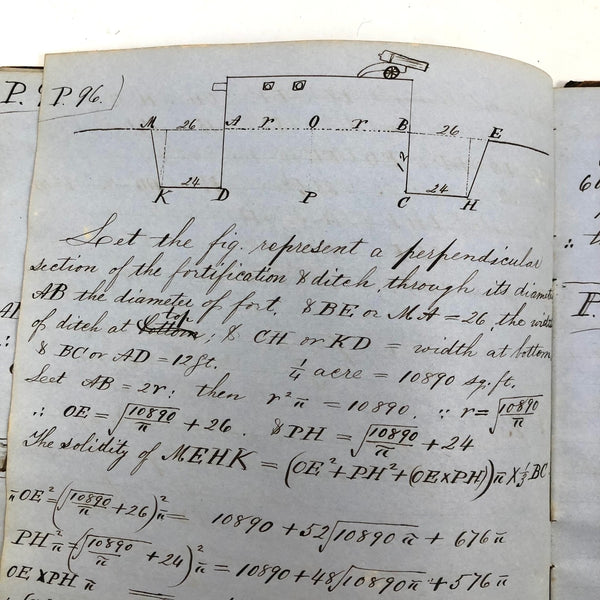 P. 96.
M 26 A r O r B 26 E
12
24 24
K D P C H
Let the fig. represent a perpendicular
section of the fortification & ditch, through its diame
AB the diameter of fort, & BE or MA = 26, the wid
top
of ditch at bottom, & CH or KD = width at bottom
& BC or AD = 12 ft. 1/4 acre = 10890 sq. ft.
Let AB = 2r: then r²π = 10890. ∵ r = √(10890/π)
∴ OE = √(10890/π) + 26. & PH = √(10890/π) + 24
The solidity of MEHK = (OE² + PH² + (OE × PH))π × 1/3 BC
πOE² = (√(10890/π) + 26)²π = 10890 + 52√10890π + 676π
PH²π = (√(10890/π) + 24)²π = 10890 + 48√10890π + 576π
OE × PH π